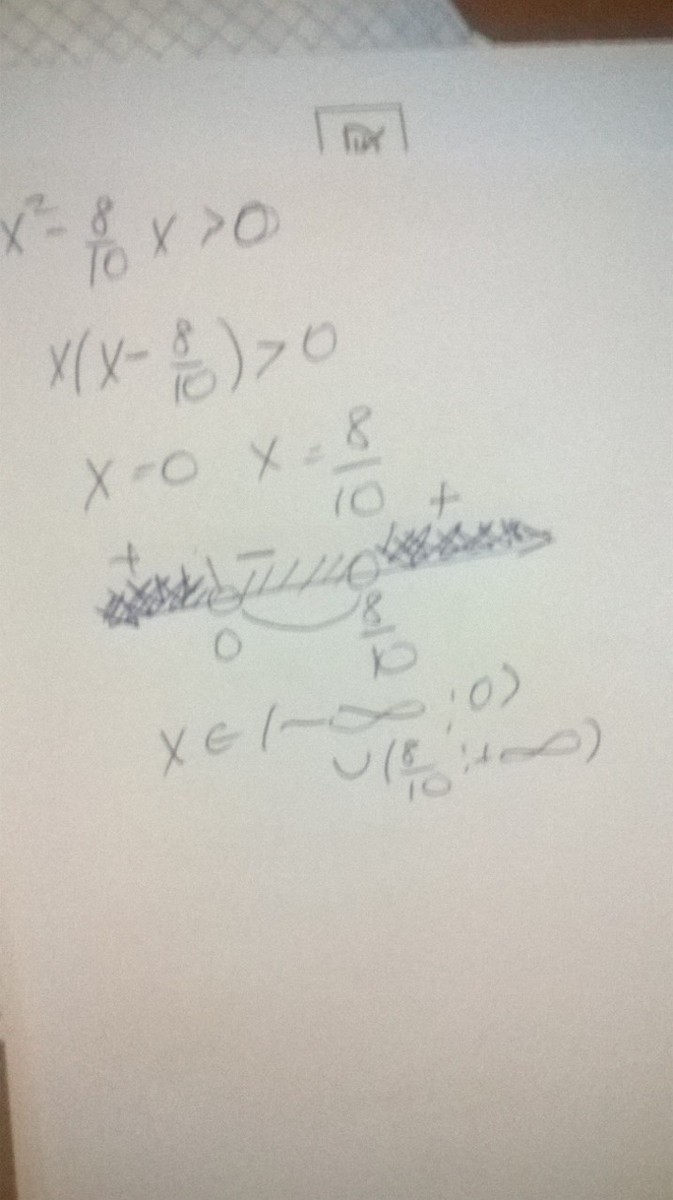 x² - 8/10 x > 0
x(x - 8/10) > 0
x = 0 x = 8/10
+ - +
0 8/10
x ∈ (-∞ ; 0)
∪ (8/10 ; +∞)